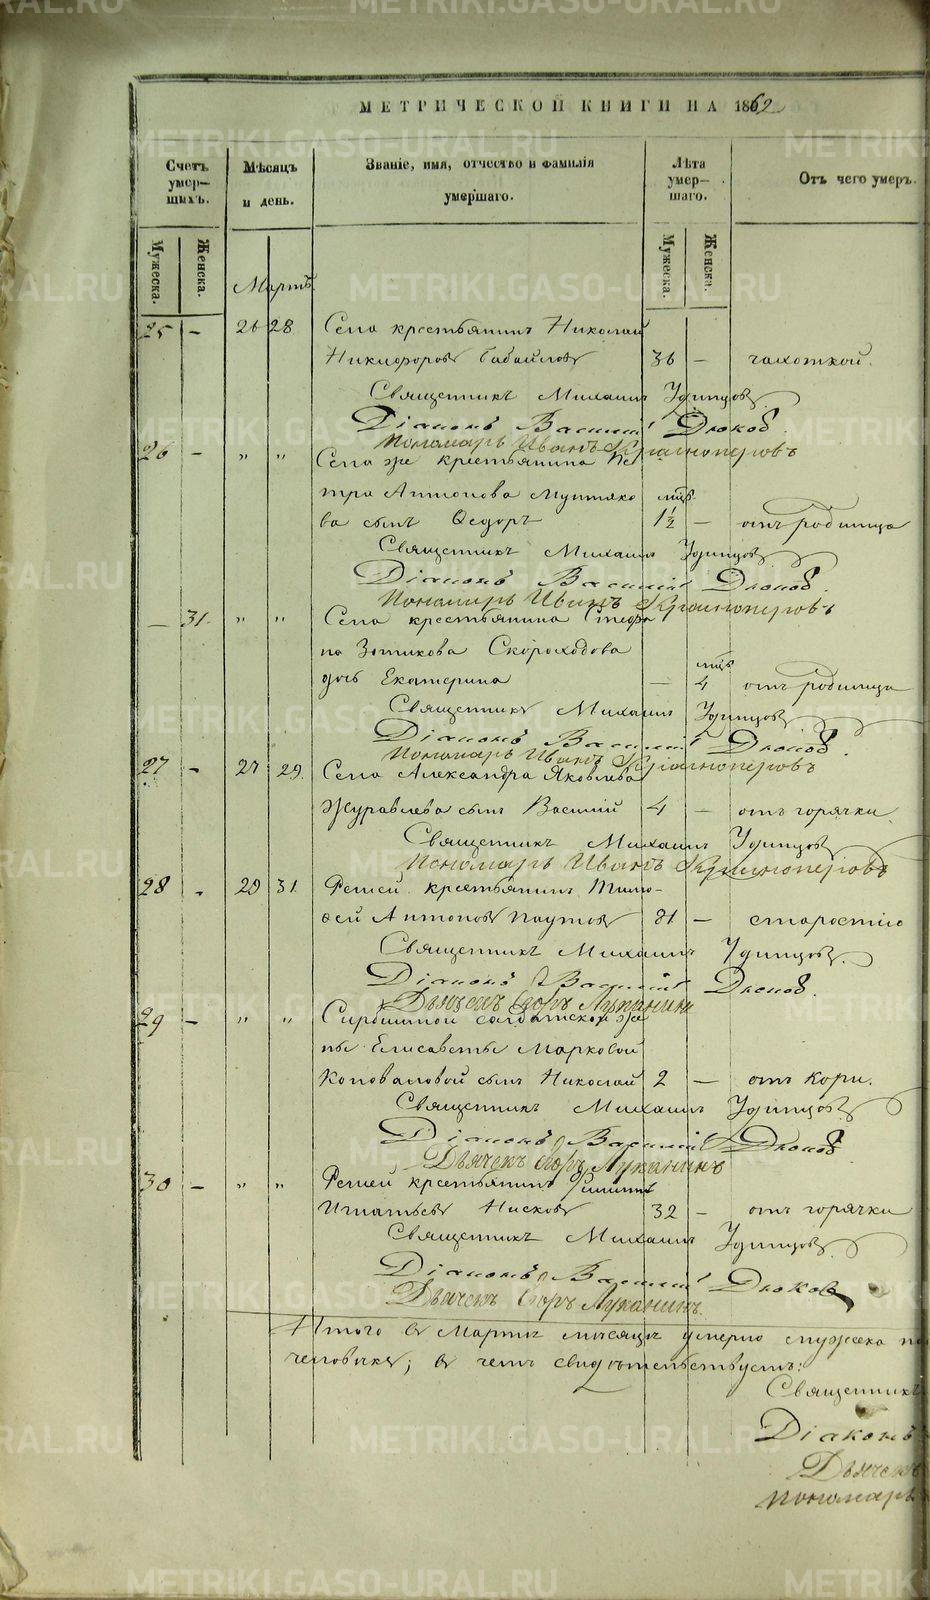 МЕТРИЧЕСКОЙ КНИГИ НА 1862
Счетъ умер-шихъ.
Мѣсяцъ и день.
Званіе, имя, отчество и фамилія умершаго.
Лѣта умер-шаго.
Отъ чего умеръ.
Мужеска. Женска.
Мужеска. Женска.
Мартъ
25 — 26 28 Села крестьянинъ Николай
Никифоровъ 36 — чахоткой.
Священникъ Михаилъ Удинцовъ
Діаконъ Василій Дюковъ.
Пономарь Иванъ Красноперовъ
26 — „ „ Села же крестьянина Пе
тра Антонова мцъ.
ва сынъ Ѳедоръ 1½ — отъ родимца
Священникъ Михаилъ Удинцовъ
Діаконъ Василій Дюковъ.
Пономарь Иванъ Красноперовъ
— 31. „ „ Села крестьянина Стефа
на Зотикова Скороходова мцъ
дочь Екатерина — 4 отъ родимца
Священникъ Михаилъ Удинцовъ
Діаконъ Василій Дюковъ.
Пономарь Иванъ Красноперовъ
27 — 27 29. Села Александра Яковлева
Журавлева сынъ Василій 4 — отъ горячки
Священникъ Михаилъ Удинцовъ
Пономарь Иванъ Красноперовъ
28 — 29 31. крестьянинъ Тимо-
ѳей Антоновъ Паутовъ 81 — старостію
Священникъ Михаилъ Удинцовъ.
Діаконъ Василій Дюковъ.
Дьячекъ Егоръ Луканинъ
29 — „ „ солдатской же
ны Елисаветы Марковой
Коноваловой сынъ Николай 2 — отъ кори.
Священникъ Михаилъ Удинцовъ
Діаконъ Василій Дюковъ
Дьячекъ Егоръ Луканинъ
30 — „ „ крестьянинъ
Игнатьевъ Писковъ 32 — отъ горячки
Священникъ Михаилъ Удинцовъ
Діаконъ Василій Дюковъ
Дьячекъ Егоръ Луканинъ.
Итого въ Мартѣ мѣсяцѣ умерло мужеска по
человѣкъ; въ чемъ свидѣтельствуемъ:
Священникъ
Діаконъ
Дьячекъ
Пономарь
METRIKI.GASO-URAL.RU